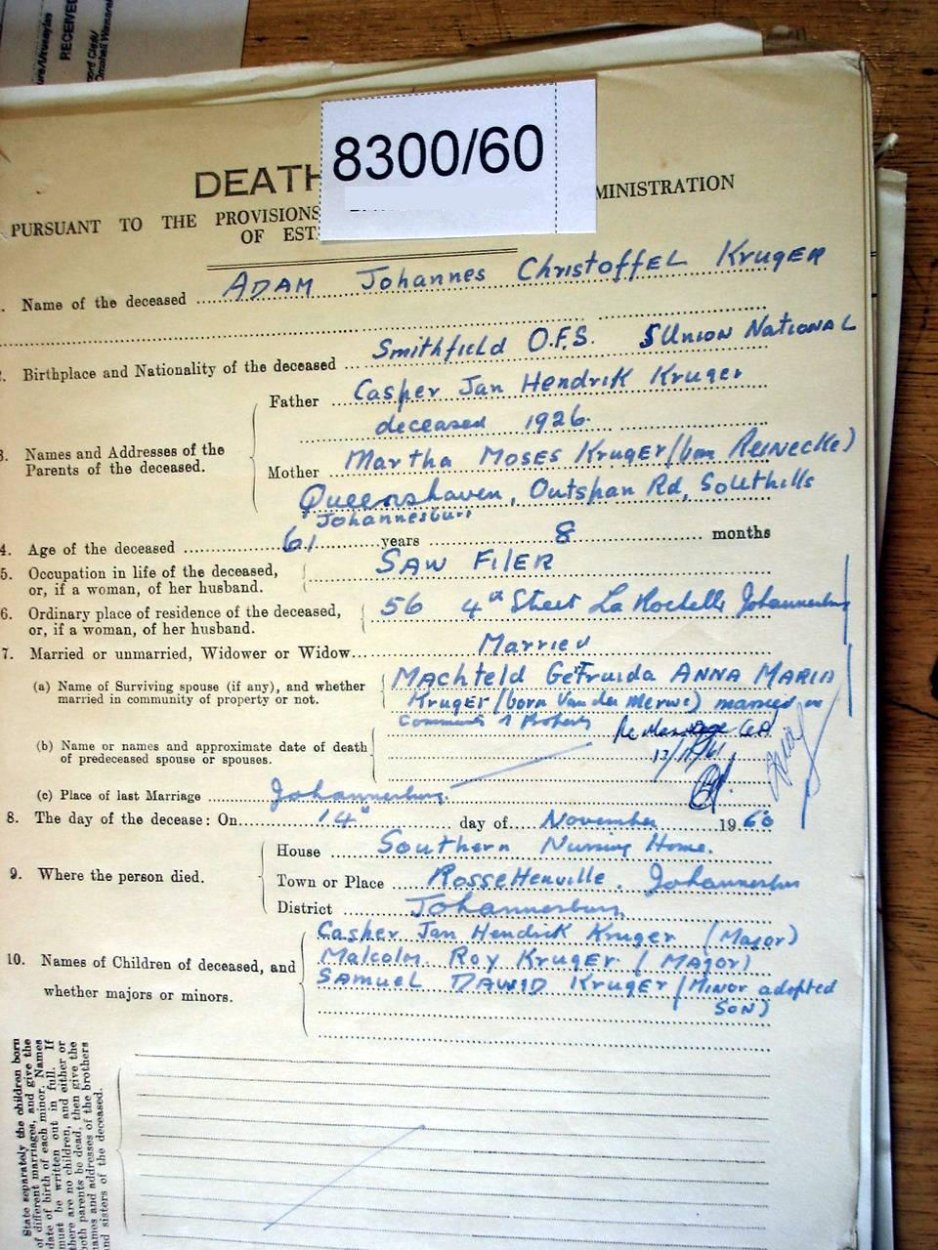 RECEIVED
8300/60
DEATH MINISTRATION
PURSUANT TO THE PROVISIONS
OF EST
Name of the deceased ADAM Johannes ChristoffEL KrugER
2. Birthplace and Nationality of the deceased Smithfield O.F.S. S Union NATIONAL
3. Names and Addresses of the Parents of the deceased.
Father Casper Jan Hendrik Kruger
deceased 1926.
Mother Martha MOSES Kruger (born ReiNecke)
Queenshaven, Outspan Rd, Southills
Johannesburg
4. Age of the deceased 61 years 8 months
5. Occupation in life of the deceased, SAW FilER
or, if a woman, of her husband.
6. Ordinary place of residence of the deceased, 56 4th Street La Rochelle Johannesburg
or, if a woman, of her husband.
7. Married or unmarried, Widower or Widow Married
(a) Name of Surviving spouse (if any), and whether MAchteld Getruida ANNA MARIA
married in community of property or not. KrugER (born Van der Merwe) married in
Community of Property
(b) Name or names and approximate date of death
of predeceased spouse or spouses.
(c) Place of last Marriage Johannesburg
8. The day of the decease: On 14th day of November 1960
9. Where the person died.
House Southern Nursing Home.
Town or Place RosseHenville. Johannesburg
District Johannesburg
10. Names of Children of deceased, and
whether majors or minors.
Casper Jan Hendrick Kruger (Major)
Malcolm Roy KrugER (MAJOR)
SAmuEL DAWID KrugER (Minor adopted
SON)
State separately the children born
of different marriages, and give the
date of birth of each minor. Names
must be written out in full. If
there are no children, and either or
both parents be dead, then give the
names and addresses of the brothers
and sisters of the deceased.